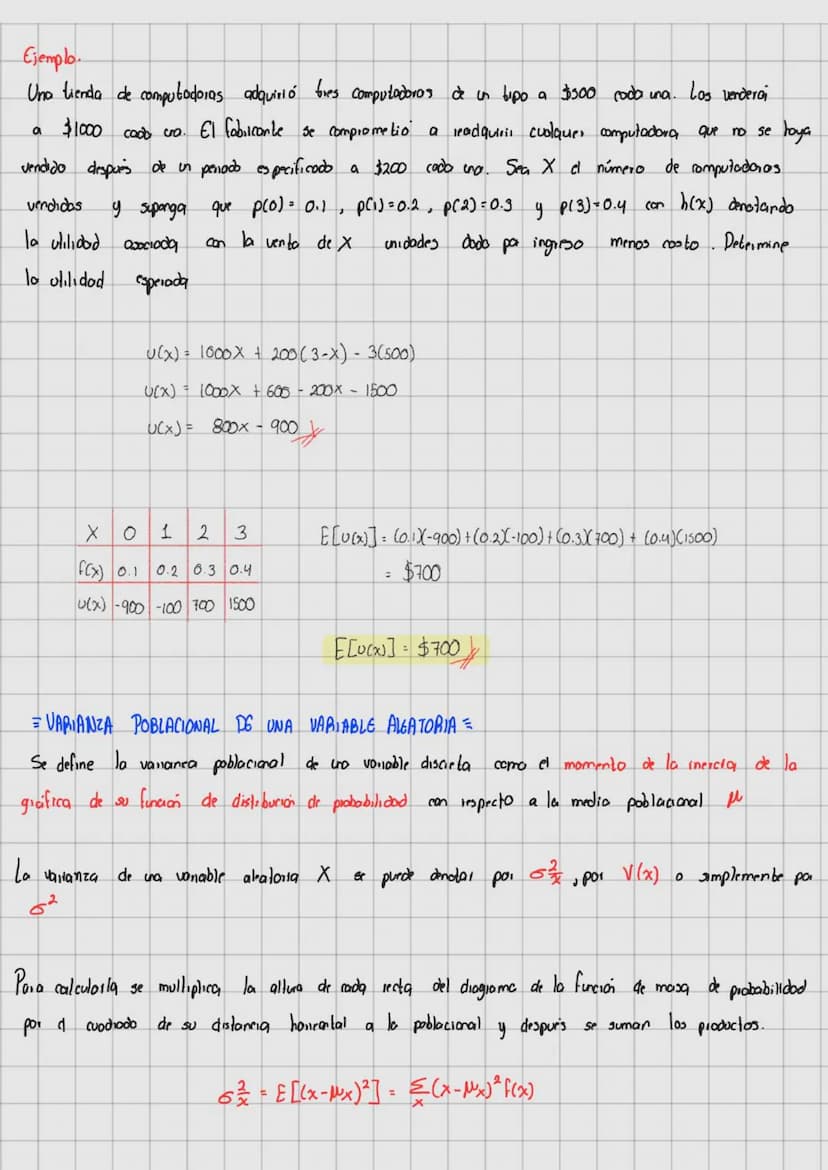 Ejemplo.
Una tienda de computadoras adquirió tres computadoras de un tipo a $500 cada una. Las venderá
a $1000 cada una. El fabricante se comprometió a readquirir cualquier computadora que no se haya
vendido después de un periodo especificado a $200 cada una. Sea X el número de computadoras
vendidas y suponga que p(0) = 0.1, p(1)=0.2, p(2)=0.3 y p(3)=0.4 con h(x) denotando
la utilidad asociada con la venta de X unidades dado por ingreso menos costo. Determine
la utilidad esperada
U(x) = 1000X + 200(3-X) - 3(500)
U(x) = 1000X + 600 - 200x - 1500
U(x) = 800x - 900
X 0 1 2 3
f(x) 0.1 0.2 0.3 0.4
U(x) -900 -100 700 1500
E[U(x)] = (0.1)(-900)+(0.2)(-100)+(0.3)(700) + (0.4)(1500)
= $700
E[U(x)] = $700
= VARIANZA POBLACIONAL DE UNA VARIABLE ALEATORIA =
Se define la varianza poblacional de una variable discreta como el momento de la inercia de la
gráfica de su función de distribución de probabilidad con respecto a la media poblacional μ
La varianza de una variable aleatoria X se puede denotar por σ²x, por V(x) o simplemente por
σ²
Para calcularla se multiplica la altura de cada recta del diagrama de la función de masa de probabilidad
por el cuadrado de su distancia horizontal a la poblacional y después se suman los productos.
σ²x = E[(x-μx)²] = Σx (x-μx)² f(x)